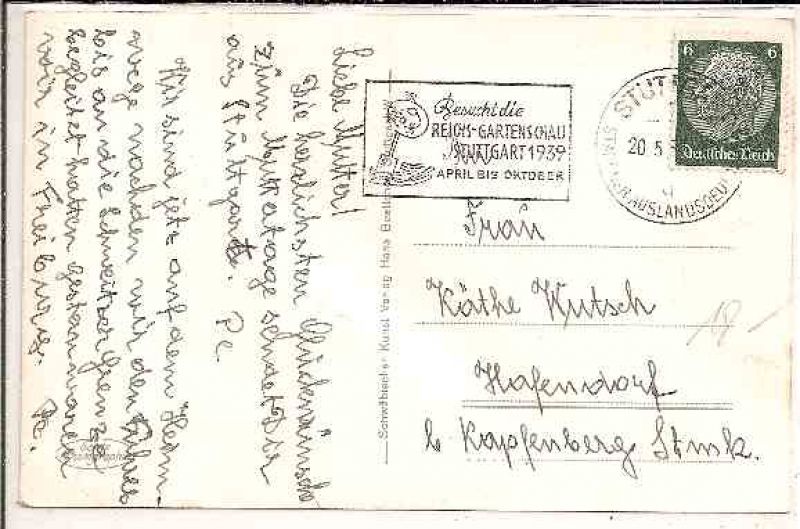 Liebe Mutter!
Die herzlichsten Glückwünsche
zum Muttertage sendet Dir
aus Stuttgart. Pe.
Wir sind jetz auf dem Heim-
wege nachdem wir den Führer
bis an die Schweitzergrenze
begleitet hatten. Gestern waren
wir in Freiburg. Pe.
Schwäbischer Kunst Verlag Hans Boettcher Stuttgart
Besucht die
REICHS-GARTENSCHAU
STUTTGART 1939
APRIL BIS OKTOBER
STUTT
20.5.
AUSLANDSDEU
6 6
Deutsches Reich
Frau
Käthe Kutsch
Hafendorf
b Kapfenberg Stmk.
18 -